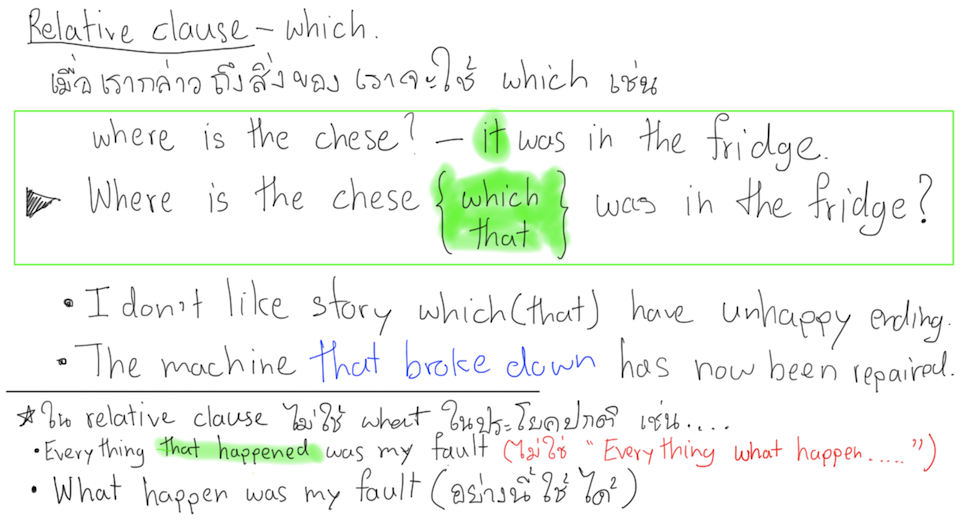 Relative clause – which.
เมื่อเรากล่าวถึงสิ่งของ เราจะใช้ which เช่น
where is the chese? – it was in the fridge.
Where is the chese { which / that } was in the fridge?
• I don't like story which (that) have unhappy ending.
• The machine that broke down has now been repaired.
★ ใน relative clause ไม่ใช้ what ในประโยคปกติ เช่น....
• Everything that happened was my fault (ไม่ใช่ "Everything what happen.....")
• What happen was my fault (อย่างนี้ใช้ได้)